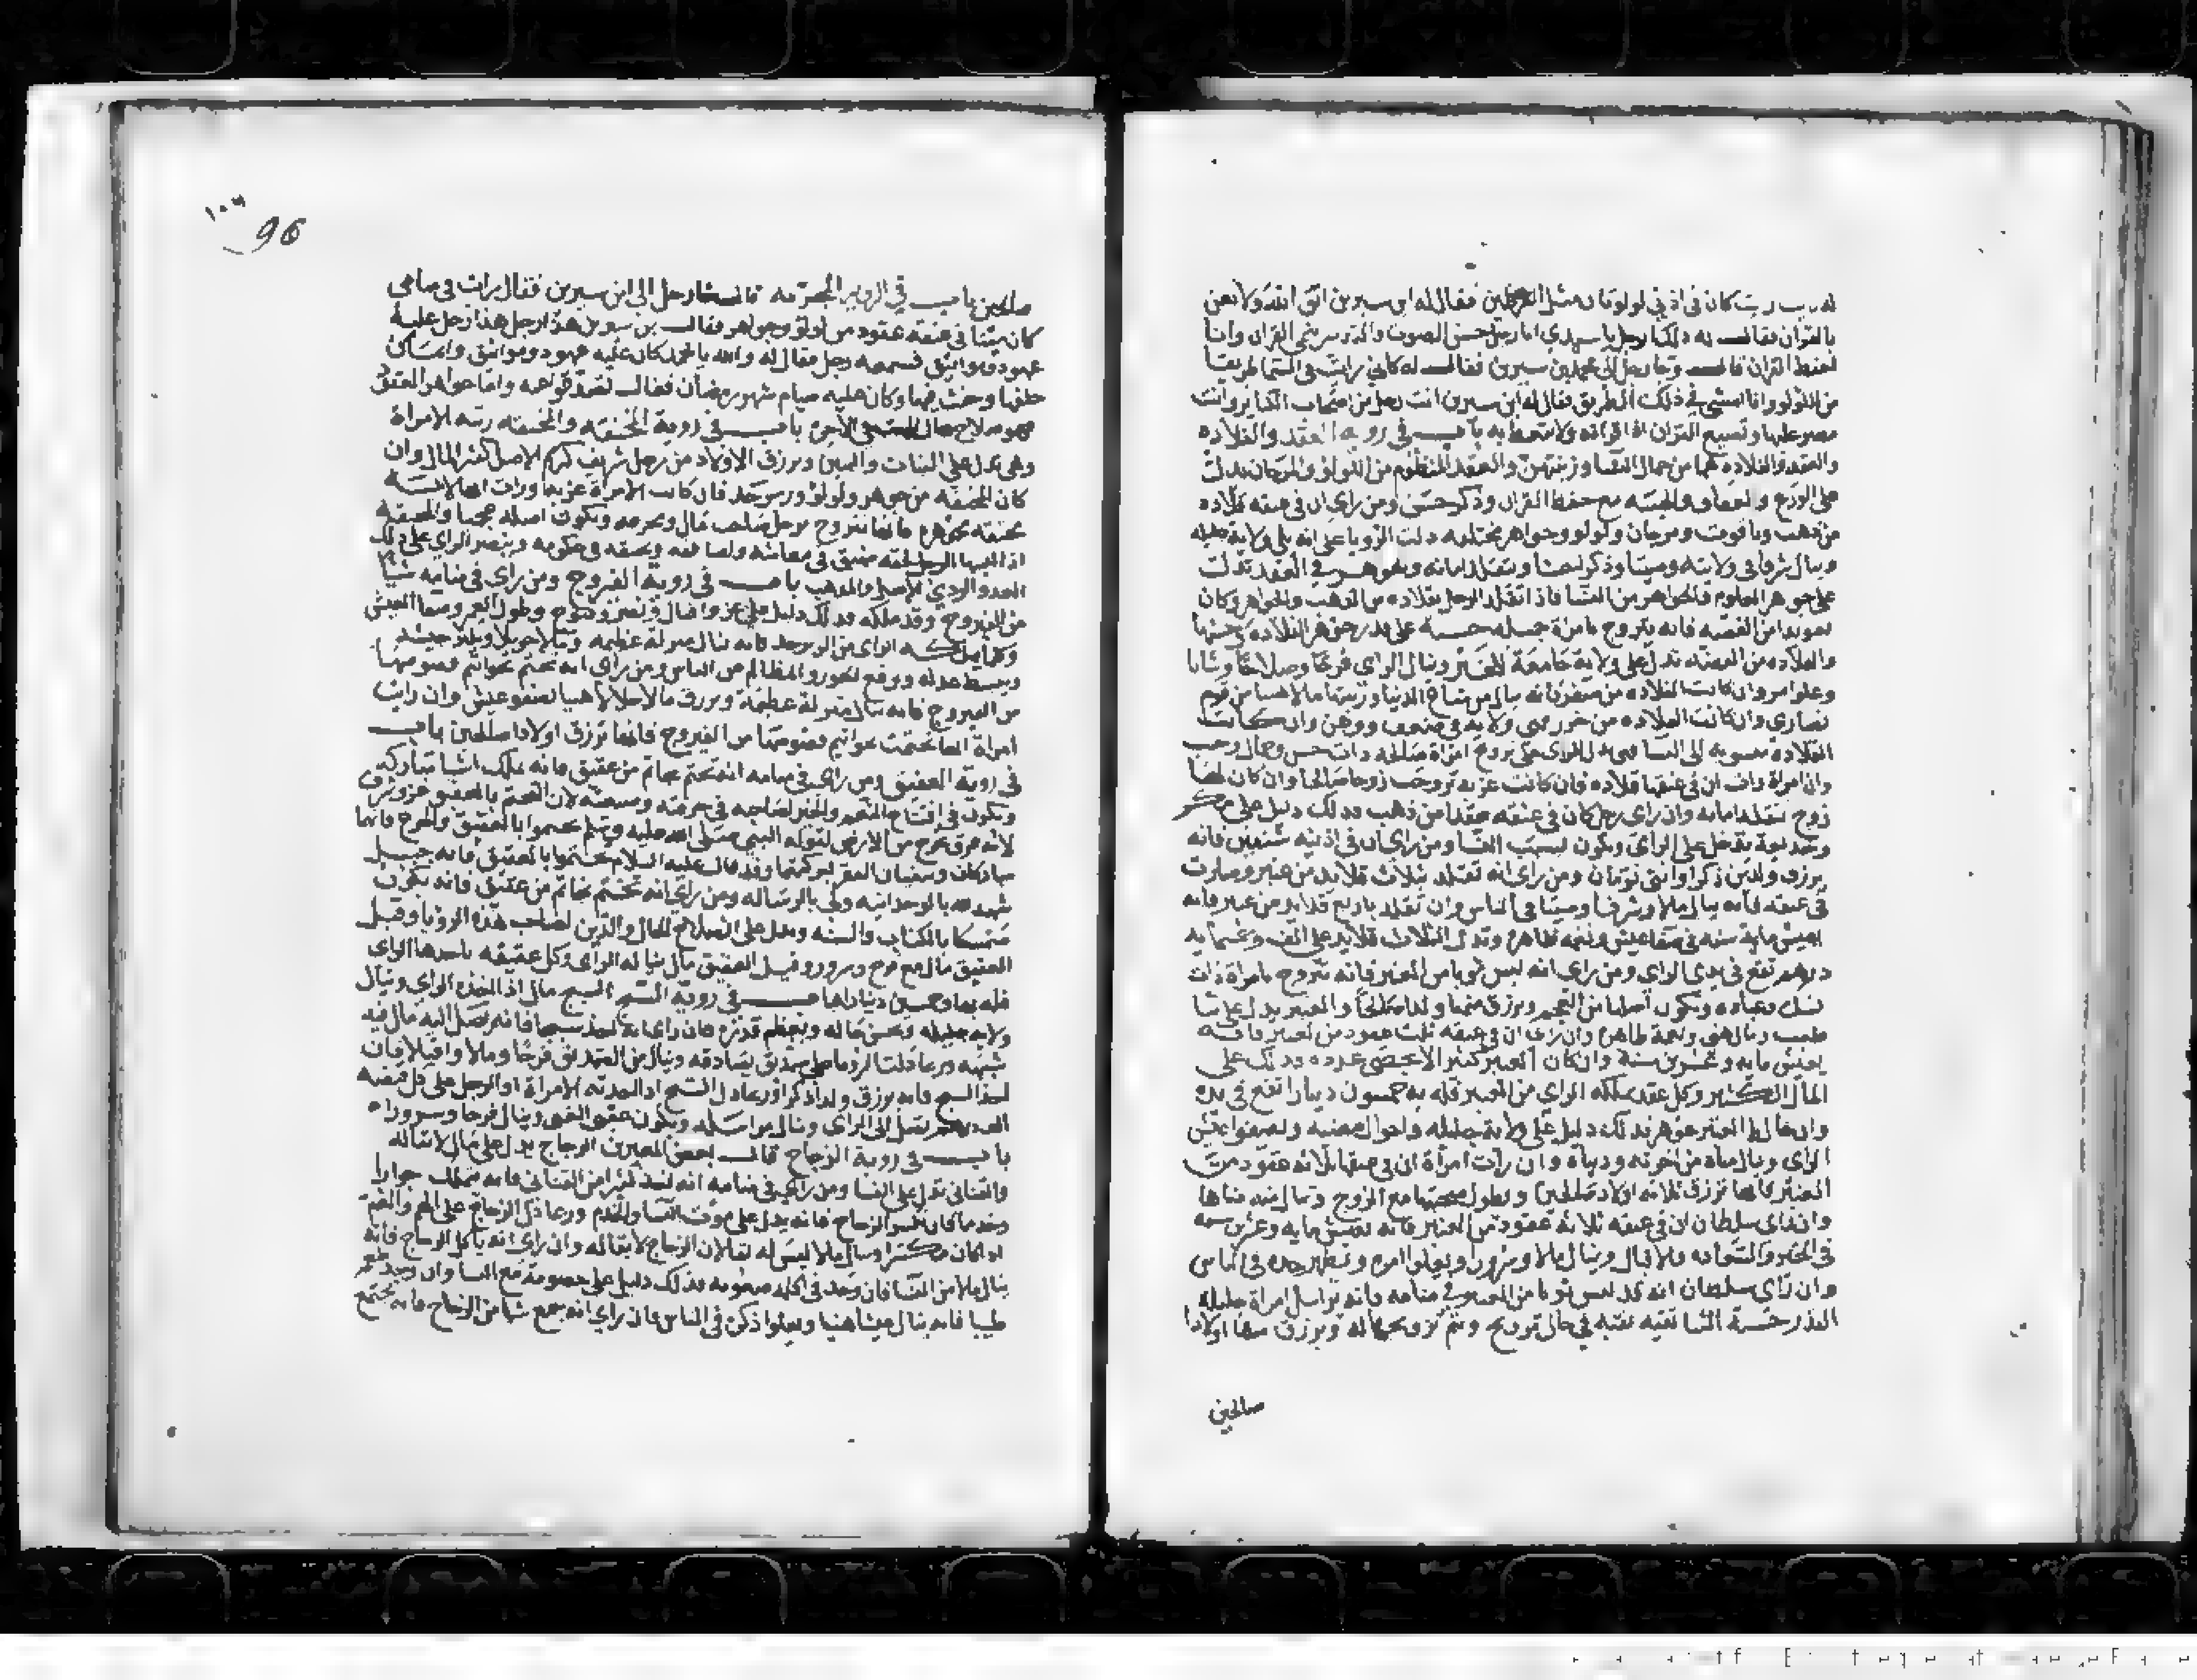 له رايت كان في اذني لولوتان مثل القرطين فقال له ابن سيرين اتق الله ولا تغن
بالقران فقال له ذلك الرجل يا سيدي انا رجل حسن الصوت القران وانا
احفظ القران قال وجا رجل الى محمد بن سيرين فقال له كاني رايت في السما طريقا
من اللولو وانا امشي في ذلك الطريق فقال له ابن سيرين انت رجل من اصحاب الكبائر وانت
مصر عليها وتضيع القران اذا قراته ولا تتعظ به باب في روية العقد والقلاده
والعقد والقلاده هما من جمال النسا وزينتهن والعقد المنظوم من اللولو والمرجان يدل
على الورع مع حفظ القران وذكر حسن ومن راي ان في عنقه قلاده
من ذهب وياقوت ومرجان ولولو وجواهر مختلفه دلت الرويا على انه يلي ولاية جليله
وينال شرفا في ولايته وصيتا وذكرا حسنا ويتقلد امانه في العقد تدل
على جوهر العلوم والجواهر من النسا فاذا تقلد الرجل بقلاده من الذهب والجواهر وكان
من الفضه فانه يتزوج بامراة جميله حسنة على قدر جوهر القلاده وحسنها
والقلاده من الفضه تدل على ولاية جامعة للخير وينال الراي فرحا وصلاحا
وان كانت القلاده من صفر فانه ينال من متاع الدنيا وزينتها مالا هنيا من قوم
نصارى وان كانت القلاده من خرز فهي ولاية في ضعف ووهن وان كانت
القلادة منسوبه الى النسا امراة صالحه ذات حسن وجمال
وان امراة رات ان في عنقها قلاده فان كانت عزبه تزوجت زوجا صالحا وان كان لها
زوج تتقلد امانه وان راى رجل كان في عنقه عقدا من ذهب فذلك دليل على مكر
وخديعة تدخل على الراي ويكون لسبب النسا ومن راى ان في اذنيه شنفين فانه
يرزق ولدين ذكرا وانثى تومان ومن راى انه تقلد بثلاث قلايد من عنبر وصارت
في عنقه فانه ينال مالا وشرفا وصيتا في الناس وان تقلد باربع قلايد من عنبر فانه
يعيش مايه سنه في صفا عيش ونعمه ظاهره وتدل الثلاث قلايد على الف وخمسمايه
درهم تقع في يدي الراي ومن راى انه لبس ثوبا من العنبر فانه يتزوج بامراة ذات
نسك وعباده ويكون اصلها من العجم ويرزق منها ولدا صالحا والعنبر يدل على ثنا
طيب ومال هني ونعمة ظاهره وان راى ان في عنقه ثلث عقود من العنبر فانه
يعيش مايه وعشرين سنة وان كان العنبر كثير لا يحصى عدده فذلك على
المال الكثير وكل عقد يملكه الراي من العنبر فله به خمسون دينارا تقع في يده
وان خالط العنبر جوهر فذلك دليل على ولاية جليله واحوال مضيه ولصفو عيش
الراى وينال مناه من اخرته ودنياه وان رات امراة ان في عنقها ثلاثه عقود من
العنبر فانها ترزق ثلاثه اولاد صالحين ويطول صحبتها مع الزوج وتنال منه مناها
وان راى سلطان ان في عنقه ثلاثة عقود من العنبر فانه يعيش مايه وعشرين سنه
في الخير والسعاده والاقبال وينال مالا وسرورا ويعلوا امره ويظهر جده في الناس
وان راى سلطان انه قد لبس ثوبا من العنبر في منامه فانه تراسل امراة جليلة
القدر حسنة الثنا نقيه تقيه في حال تزويج ويتم تزويجها له ويرزق منها اولادا
صالحين
١٠٦
96
صالحين باب في الرويا المجربه قال جا رجل الى ابن سيرين فقال رايت في منامي
كان ميتا في عنقه عقود من لولو وجواهر فقال بن سيرين هذا الرجل هذا رجل عليه
عهود ومواثيق فسمعه رجل فقال له والله يا محمد كان عليه عهود ومواثيق وايمان
حلفها وحنث فيها وكان عليه صيام شهر رمضان فقال واما جواهر العقد
فهو صلاح باب في روية المخنقه والمخنقه زينه لامراة
وهي تدل على البنات والبنين ويرزق الاولاد من رجل شريف كريم الاصل كثير المال وان
كان المخنقه من جوهر ولولو وزبرجد فان كانت الامراة عزبه ورات انها لابسه
مخنقه جوهر فانها تتزوج برجل صاحب مال وحرمه ويكون اصله عجميا والمخنقه
اذا لبسها الرجل فانه ضيق في معاشه في حكومه وينصر الراي على ذلك
العدو الردي الاصل والمذهب باب في روية الفيروج ومن راى في منامه شيا
من الفيروج وقد ملكه فذلك دليل على عز واقبال ونصر وفتوح وطول العمر وصفا العيش
وكلما يملكه الراى من الزبرجد فانه ينال منزلة عظيمه ومالا جزيلا ويقود جيش
ويبسط عدله ويرفع الجور والمظالم من الناس ومن راى انه تختم بخواتم فصوصها
من الفيروج فانه ينال منزلة عظيمة ويرزق مالا حلالا هنيا لصفو عيش وان رات
امراة انها تختمت بخواتيم فصوصها من الفيروج فانها ترزق اولادا صالحين باب
في روية العقيق ومن راى في منامه انه تختم بخاتم من عقيق فانه يملك اشيا مباركه
ويكون في افتتاح النعيم والخير لصاحبه في حرفته وصنعته لان التختم بالعقيق عز وشرف
لانه عرق يخرج من الارض لقوله النبي صلى الله عليه وسلم تختموا بالعقيق فانها
مباركان وينفيان الفقر لبركتهما وقد قال عليه السلام تختموا بالعقيق فانه جبل
شهد لله بالوحدانيه ولي بالرساله ومن راى انه تختم بخاتم من عقيق فانه يكون
متمسكا بالكتاب والسنه ويدل على اصلاح الحال والدين لصاحب هذه الرويا وقيل
العقيق مال مع فرح وسرور وقيل العقيق مال يناله الراى وكل عقيقه ياخذها الراى
فله بها وخمسين دينارا باب في روية السبج السبج مال اذا اخذه الراى وينال
ولايه جليله ويحسن حاله ويعظم قدره فان راى انه اخذ سبجا فانه يصل اليه مال فيه
شبهه وربما دلت الرويا على صديق يصادقه وينال من الصديق فرحا ومالا واقبالا فان
اخذ السبج فانه يرزق ولدا ذكرا وربما دل السبج اذا اخذته الامراة او الرجل على مال فضه
يقبل الى الراى وينال مراسله ويكون عقبى الغنى وينال فرحا وسرورا
باب في روية الزجاج قال بعض المعبرين الزجاج يدل على مال لا بقا له
والقناني تدل على النسا ومن راى في منامه انه اخذ كثيرا من القناني فانه يملك جوارا
وخدما كان كسر الزجاج فانه يدل على موت النسا والخدم وربما دل الزجاج على الهم والغم
او كان مكسرا وينال مالا ليس له بقا لان الزجاج لا بقا له وان راى انه ياكل الزجاج فانه
ينال مالا من النسا فان وجد في اكله صعوبه فذلك دليل على خصومة مع النسا وان وجد طعم
طيبا فانه ينال عيشا هنيا ويعلوا ذكره في الناس فان راى انه جمع شيا من الزجاج فانه يجتمع